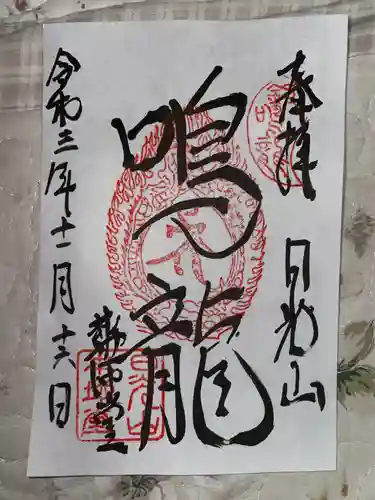 奉拝
日光山
鳴龍
薬師堂
令和三年十一月十六日